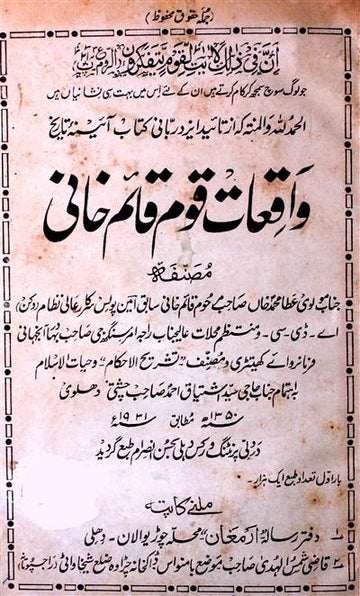 (جملہ حقوق محفوظ)
إِنَّ فِي ذٰلِكَ لَاٰيٰتٍ لِّقَوْمٍ يَّتَفَكَّرُونَ
جو لوگ سوچ سمجھ کر کام کرتے ہیں ان کے لئے اس میں بہت سی نشانیاں ہیں
الحمد للہ والمنۃ کہ از تائید ایزد ربانی کتاب آئینہ تاریخ
واقعات قوم قائم خانی
مصنفہ
جناب مولوی عطا محمد خاں صاحب مرحوم قائم خانی سابق امین پولیس سرکار عالی نظام (دکن)
اے۔ ڈی۔ سی۔ ومنتظم محلات عالیجناب راجہ امر سنگھ جی صاحب بہادر آنجہانی
فرمانروائے کھیتڑی ومصنف "تشریح الاحکام" وحیات الاسلام
باہتمام جناب حاجی سید اشتیاق احمد صاحب چشتی دھلوی
۱۳۵۰ھ مطابق ۱۹۳۱ء
در دلی پرنٹنگ ورکس دہلی بحسن انصرام طبع گردید
بار اول تعداد طبع ایک ہزار۔
ملنے کا پتہ
۱۔ دفتر رسالہ ارمغان محلہ چوڑیوالان۔ دھلی
۲۔ قاضی شمس الہدی صاحب موضع باسنواس ڈاکخانہ چڑاوہ ضلع شیخاواٹی (راجپوتانہ)